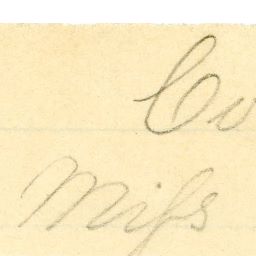 Co
Miss